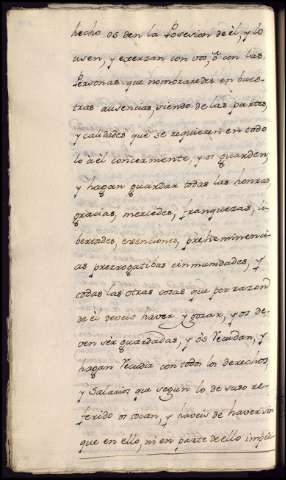 hecho os den la Posesion de èl, y lo
usen, y exerzan con vos, ò con las
Personas que nombraredes en vues-
tras ausencias, siendo de las partes,
y calidades que se requieren en todo
lo à èl concerniente, y os guarden,
y hagan guardar todas las honras,
gracias, mercedes, franquezas, li-
bertades, exenciones, preheminenci-
as prerrogatibas è inmunidades, y
todas las otras cosas que por razon
de èl deveis haver y gozar, y os de-
ven ser guardadas, y os recudan, y
hagan recudir con todos los derechos,
y Salarios que segun lo de suso re-
ferido os tocan, y deveis de haver sin
que en ello, ni en parte de ello impe-